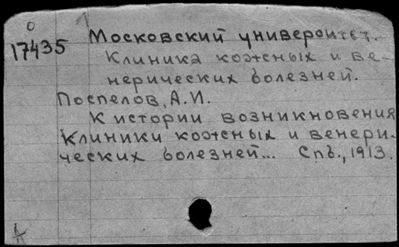 О
17435
Московский университет.
Клиника кожных и ве-
нерических болезней.
Поспелов, А.И.
К истории возникновения
клиники кожных и венери-
ческих болезней... Спб., 1913.
А